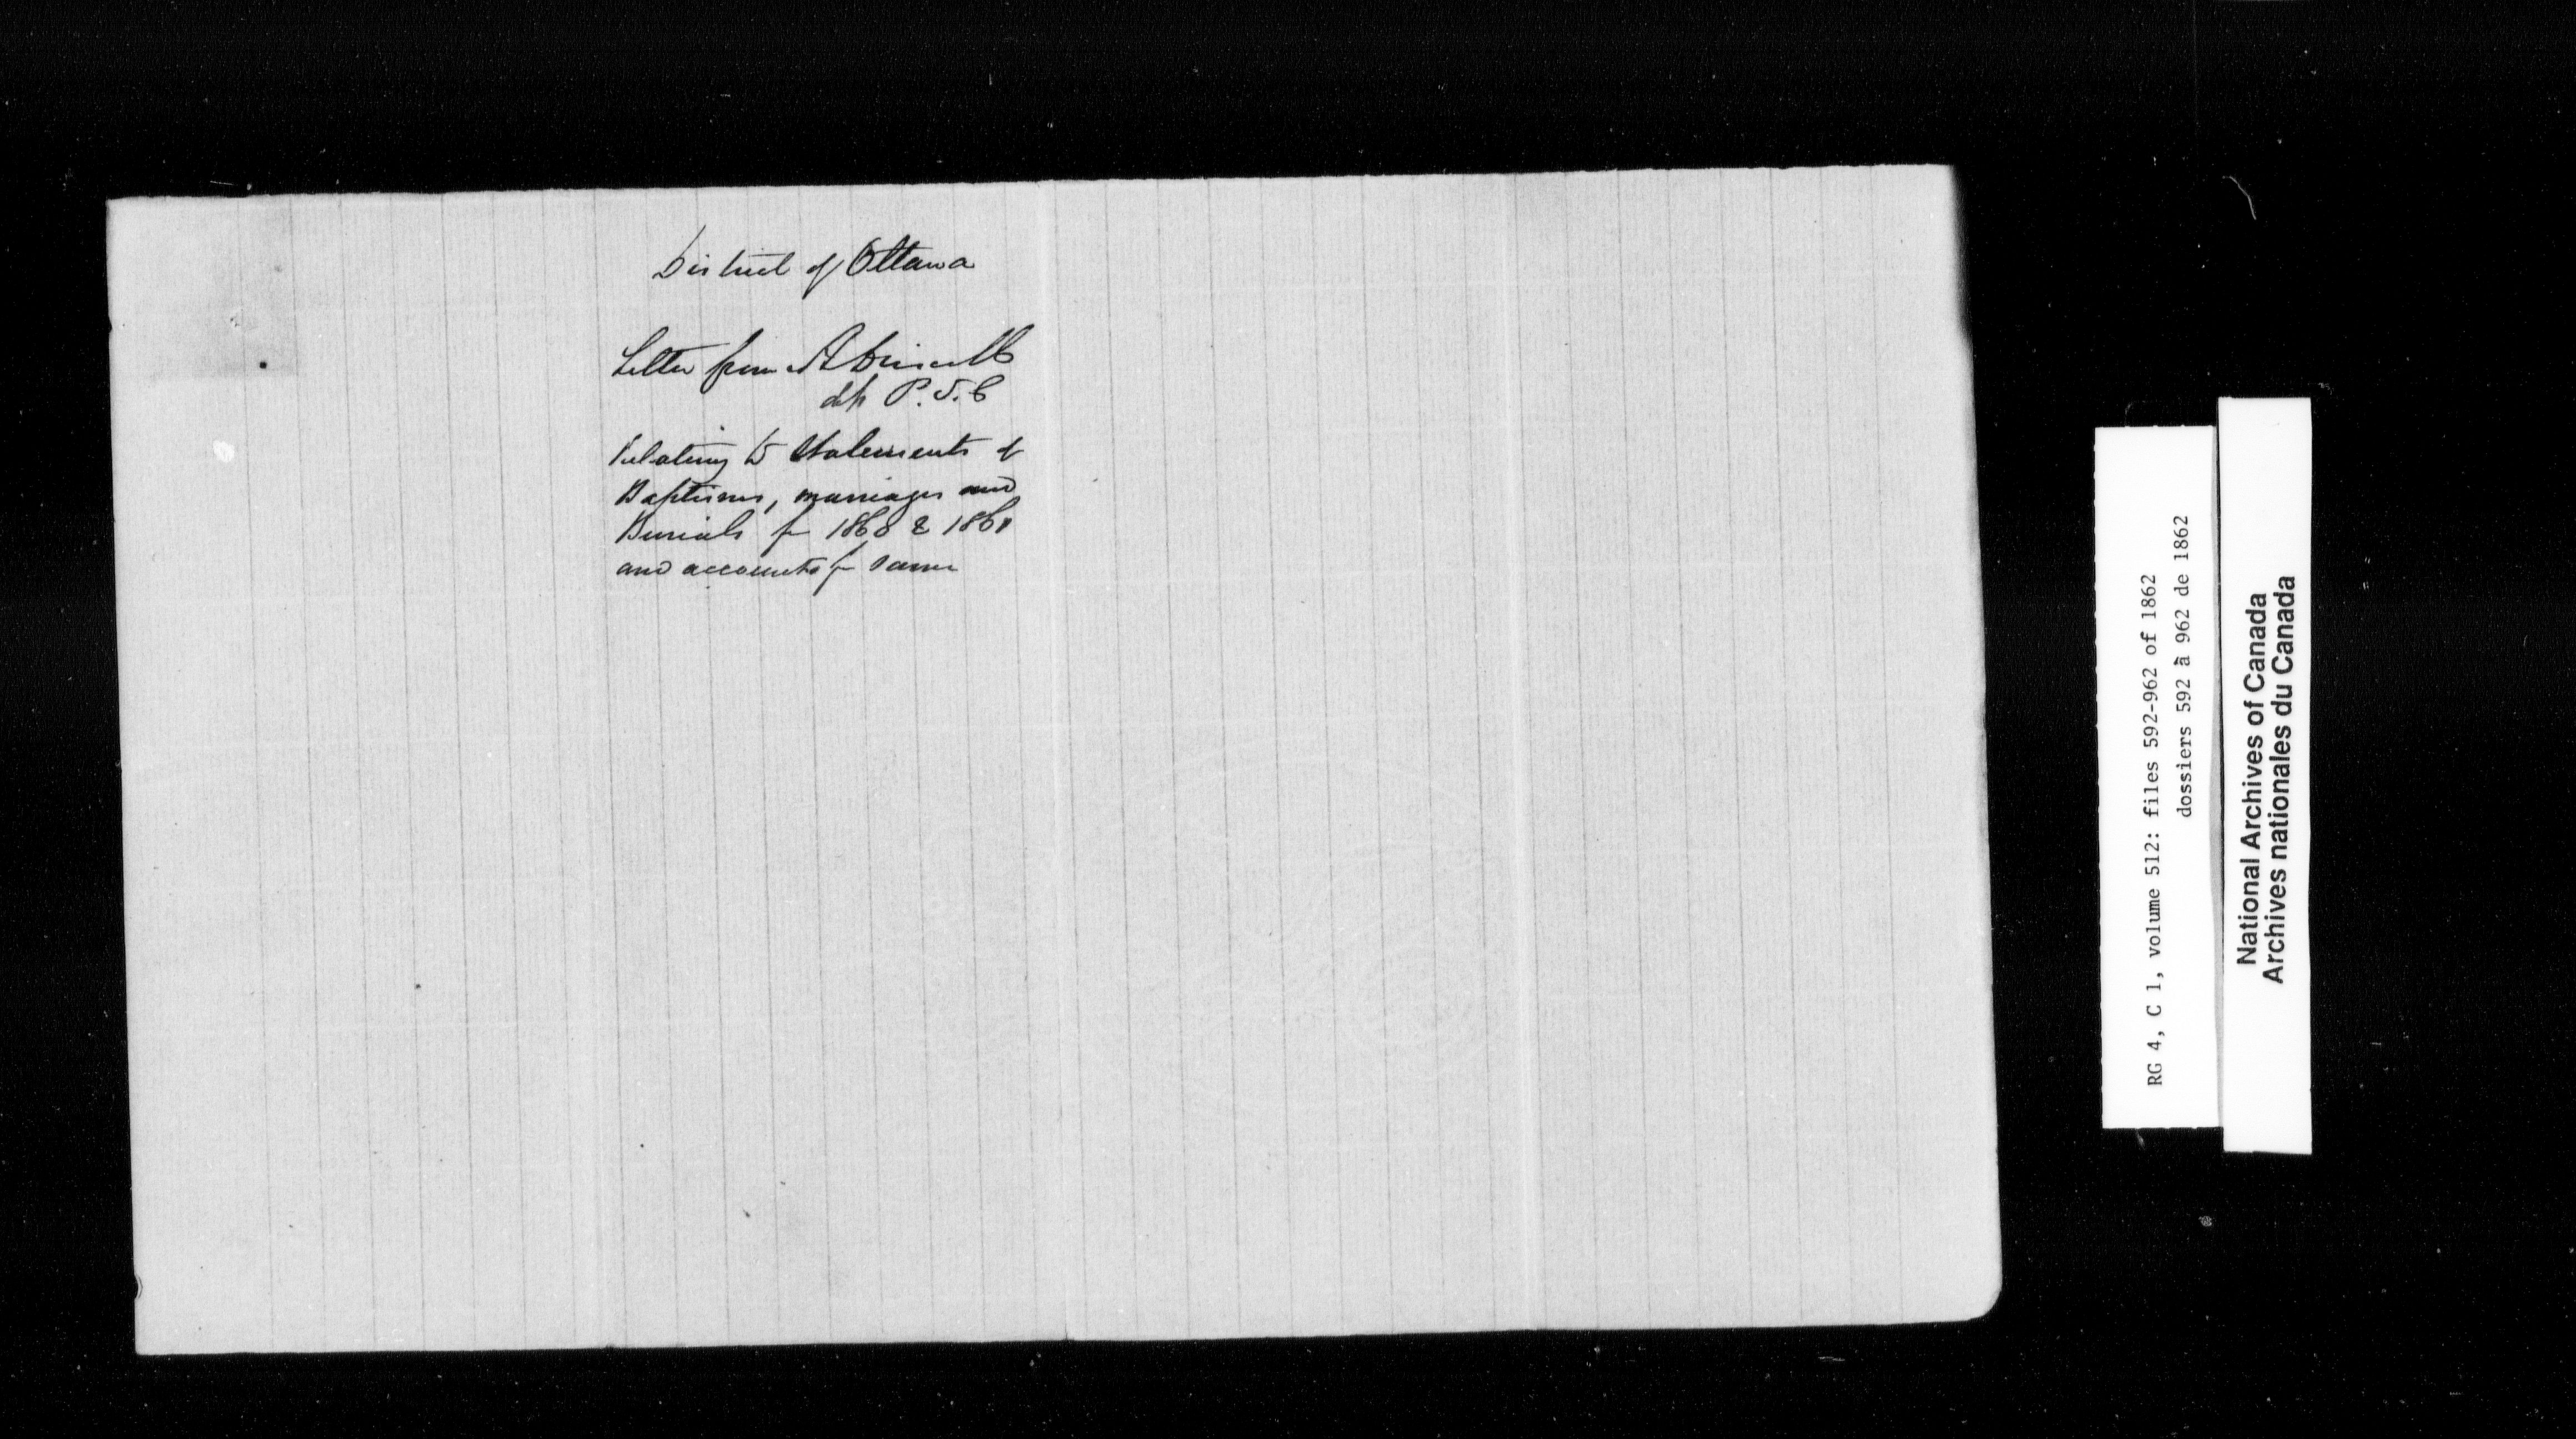 District of Ottawa
Letter from A Driscoll
dep P. S. C
Relating to Statements of
Baptisms, marriages and
Burials for 1860 & 1861
and accounts for same
RG 4, C 1, volume 512: files 592-962 of 1862
dossiers 592 à 962 de 1862
National Archives of Canada
Archives nationales du Canada